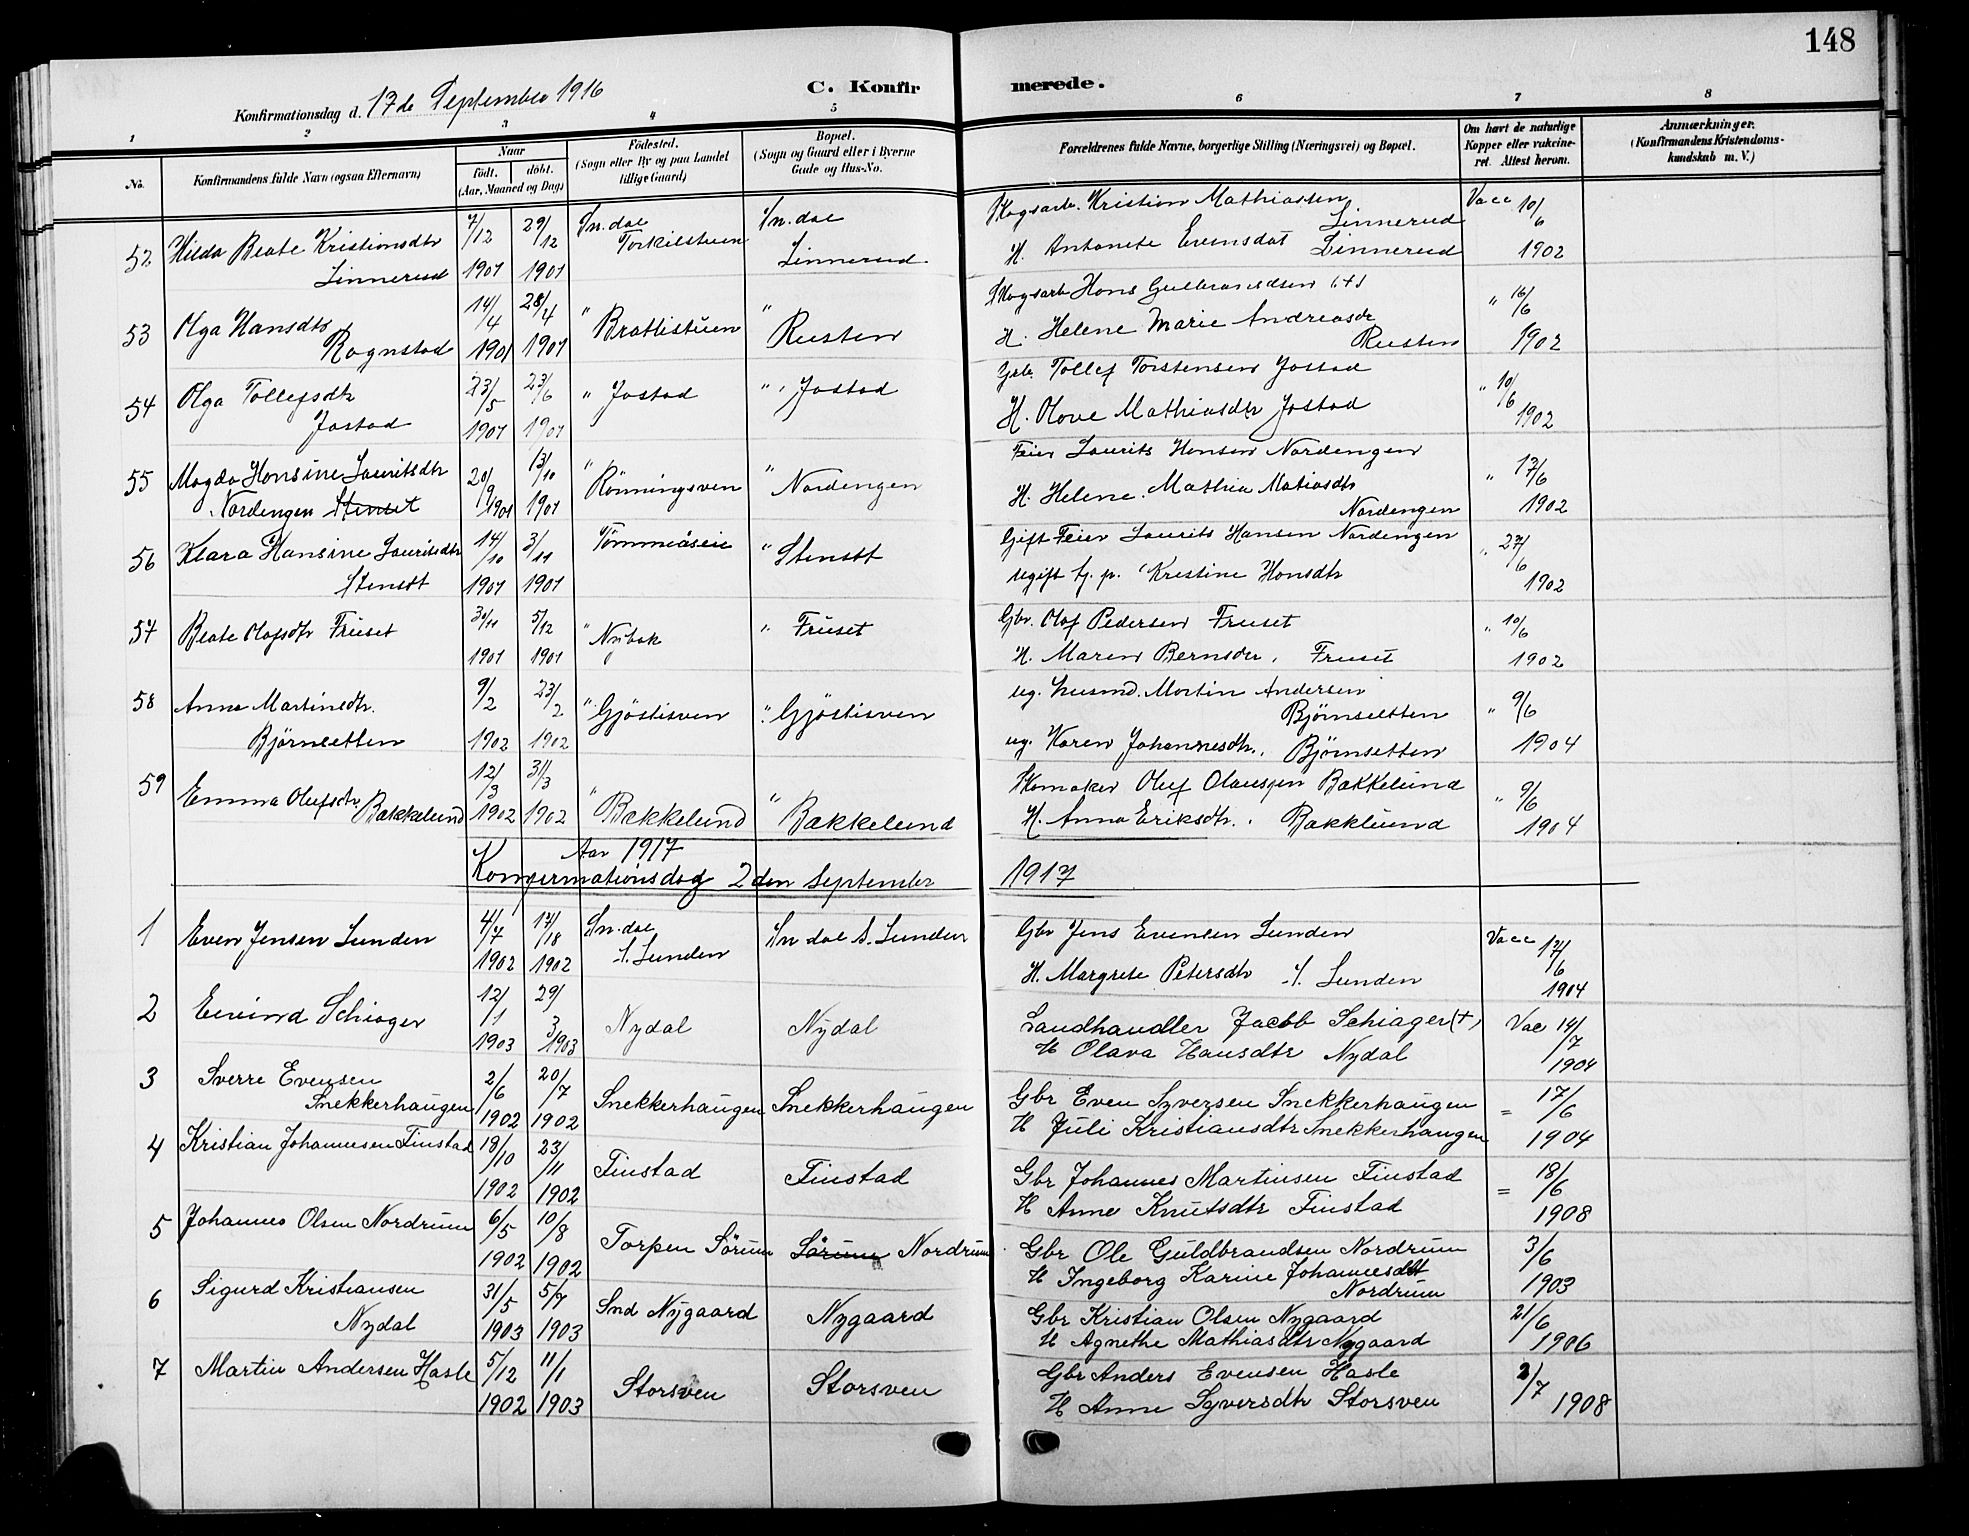 148
C. Konfirmerede.
Konfirmationsdag d. 17de September 1916
1 2 3 4 5 6 7 8
No.
Konfirmandens fulde Navn (ogsaa Efternavn)
Naar
födt. döbt.
(Aar, Maaned og Dag)
Födested.
(Sogn eller By og paa Landet
tillige Gaard)
Bopæl.
(Sogn og Gaard eller i Byerne
Gade og Hus-No.
Forældrenes fulde Navne, borgerlige Stilling (Næringsvei) og Bopæl.
Om havt de naturlige
Kopper eller vakcine-
ret. Attest herom.
Anmærkninger.
(Konfirmandens Kristendoms-
kundskab m. V.)
52 Hilda Beate Kristiansdtr Linnerud 7/12 1901 29/12 1901 Sn. dal Torkilstuen Sn. dal Linnerud
Skogsarb. Kristian Mathiassen Linnerud Vacc 10/6
H. Antonete Evensdat Linnerud 1902
53 Olga Hansdtr Rognstad 14/4 1901 28/4 1901 " Brattistuen " Rusten
Skogsarb Hans Gulbrandsen (+) " 16/6
H. Helene Marie Andreasdr Rusten 1902
54 Olga Tollefsdtr Jostad 23/5 1901 23/6 1901 " Jostad " Jostad
Grb. Tollef Torstensen Jostad " 10/6
H. Olove Mathiasdtr Jostad 1902
55 Magda Hansine Lauritsdtr Nordengen Stenset 20/9 1901 13/10 1901 " Rönningsven " Nordengen
Feier Laurits Hansen Nordengen " 13/6
H. Helene Mathea Matiasdtr Nordengen 1902
56 Klara Hansine Lauritsdtr Stenset 14/10 1901 3/11 1901 Tömmeåseie " Stenset
Gift Feier Laurits Hansen Nordengen " 27/6
ugift tj. p. Kristine Hansdtr 1902
57 Beate Olafsdtr Fruset 30/11 1901 5/12 1901 " Nybak " Fruset
Gbr. Olaf Pedersen Fruset " 10/6
H. Maren Bernsdtr. Fruset 1902
58 Anna Martinsdtr. Björnsetten 9/2 1902 23/2 1902 " Gjöstisven " Gjöstisven
ug. husmd. Martin Andersen Björnsetten " 9/6
ug. Karen Johannesdtr. Björnsetten 1904
59 Emma Olufsdtr. Bakkelund 12/3 1902 31/3 1902 " Bakkelund " Bakkelund
Skomaker Oluf Olaussen Bakkelund " 9/6
H. Anna Eriksdtr. Bakklund 1904
Aar 1917
Konfirmationsdag 2den September 1917
1 Even Jensen Lunden 4/7 1902 17/18 1902 Sn. dal S. Lunden Sn dal S. Lunden
Gbr Jens Evensen Lunden Vacc 17/6
H. Margrete Petersdtr S. Lunden 1904
2 Eivind Schiager 12/1 1903 29/3 1903 Nydal Nydal
Landhandler Jacob Schiager (+) Vac 14/7
H Olava Hansdtr Nydal 1904
3 Sverre Evensen Snekkerhaugen 2/6 1902 20/7 1902 Snekkerhaugen Snekkerhaugen
Gbr Even Syversen Snekkerhaugen = 17/6
H Juli Kristiansdtr Snekkerhaugen 1904
4 Kristian Johannesen Finstad 18/10 1902 23/11 1902 Finstad Finstad
Gbr Johannes Martinsen Finstad = 18/6
H Anne Knutsdtr Finstad 1908
5 Johannes Olsen Nordrum 6/5 1902 10/8 1902 Torpen Sörum Sörum Nordrum
Gbr Ole Guldbrandsen Nordrum 3/6
H Ingeborg Karine Johannesdtt Nordrum 1903
6 Sigurd Kristiansen Nydal 31/5 1903 5/7 1903 Snd Nygaard Nygaard
Gbr Kristian Olsen Nygaard 21/6
H Agnethe Mathiasdtr Nygaard 1906
7 Martin Andersen Hasle 5/12 1902 11/1 1903 Storsven Storsven
Gbr Anders Evensen Hasle 2/7
H Anne Syversdtr Storsven 1908